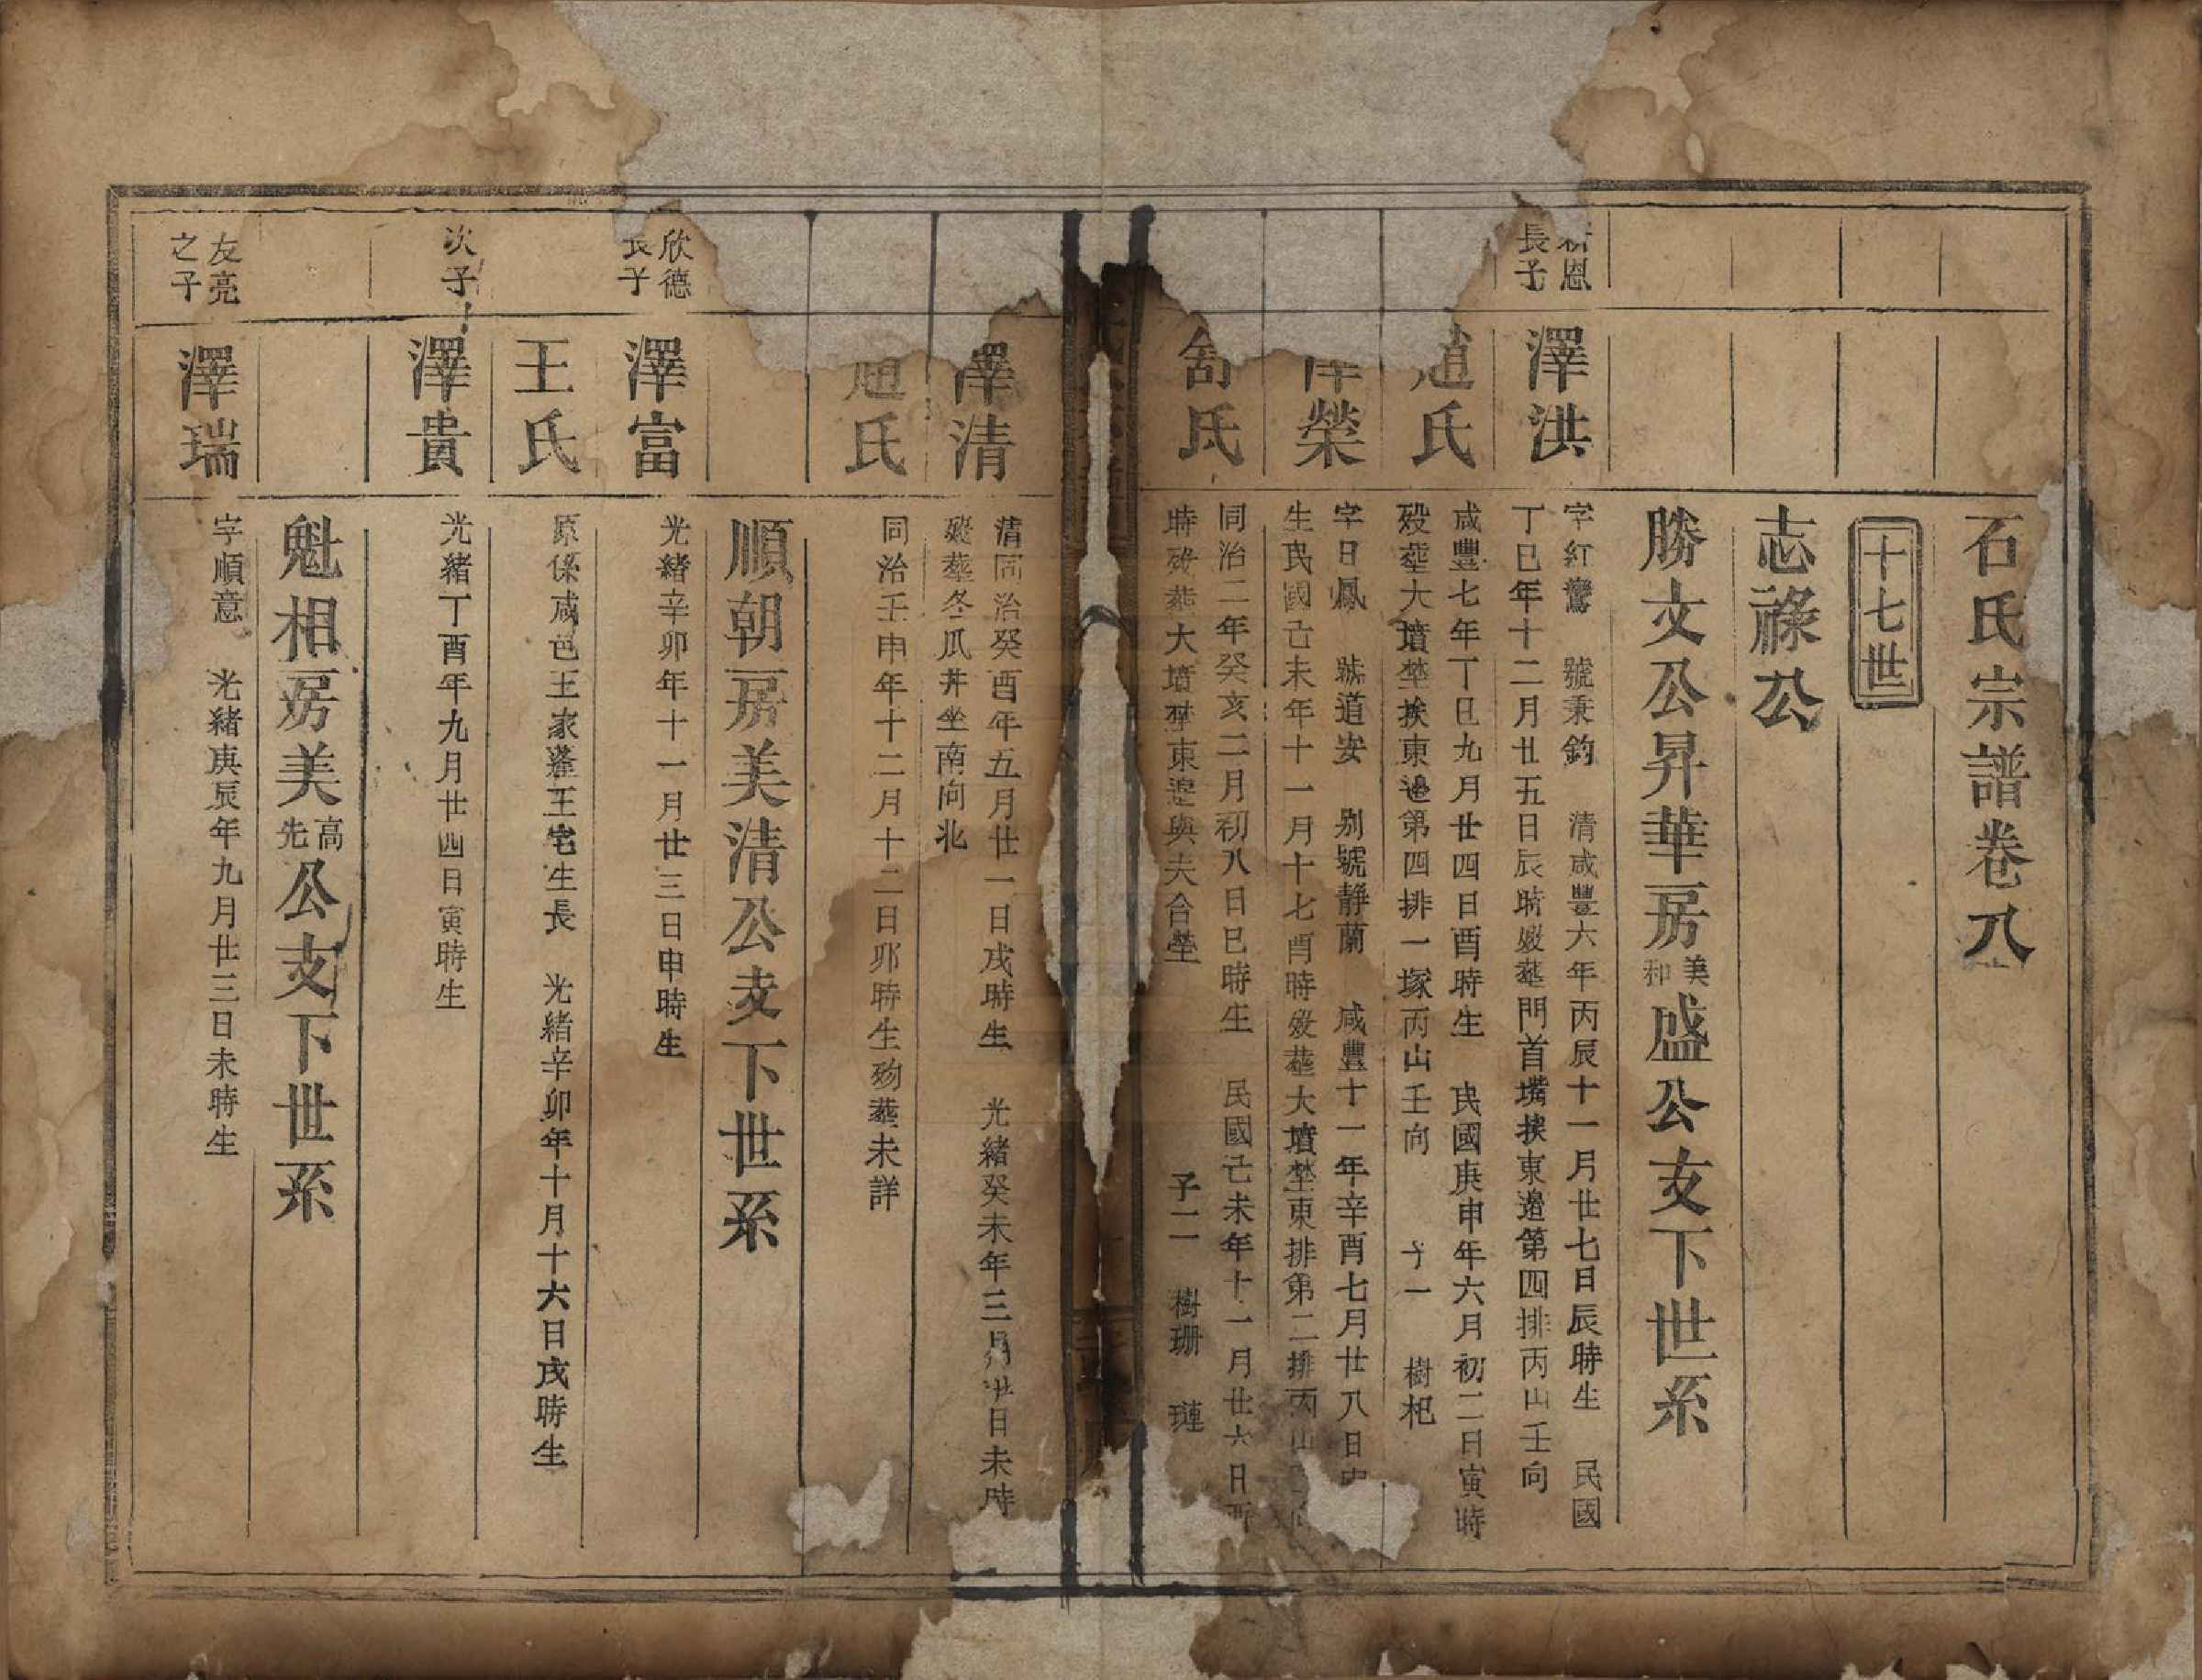 石氏宗譜卷八
十七世
志祿公
勝文公昇華房美和盛公支下世系
恩長子
澤洪
字紅鸞 號秉鈞 清咸豐六年丙辰十一月廿七日辰時生 民國
丁巳年十二月廿五日辰時歿葬門首嘴挨東邊第四排丙山壬向
氏
咸豐七年丁巳九月廿四日酉時生 民國庚申年六月初二日寅時
歿葬大墳塋挨東邊第四排一塚丙山壬向 子一 樹杞
榮
字日鳳 號道安 別號靜蘭 咸豐十一年辛酉七月廿八日
生民國己未年十一月十七酉時歿葬大墳塋東排第二排丙山
舒氏
同治二年癸亥二月初八日巳時生 民國己未年十一月廿六日酉
時歿葬大墳塋東邊與夫合塋 子二 樹珊 璉
澤清
清同治癸酉年五月廿一日戌時生 光緒癸未年三月廿日未時
歿葬冬瓜井坐南向北
趙氏
同治壬申年十二月十二日卯時生歿葬未詳
順朝房美清公支下世系
欣德長子
澤富
光緒辛卯年十一月廿三日申時生
王氏
原係咸邑王家蓬王宅生長 光緒辛卯年十月十六日戌時生
次子
澤貴
光緒丁酉年九月廿四日寅時生
魁相房美高先公支下世系
友亮之子
澤瑞
字順意 光緒庚辰年九月廿三日未時生